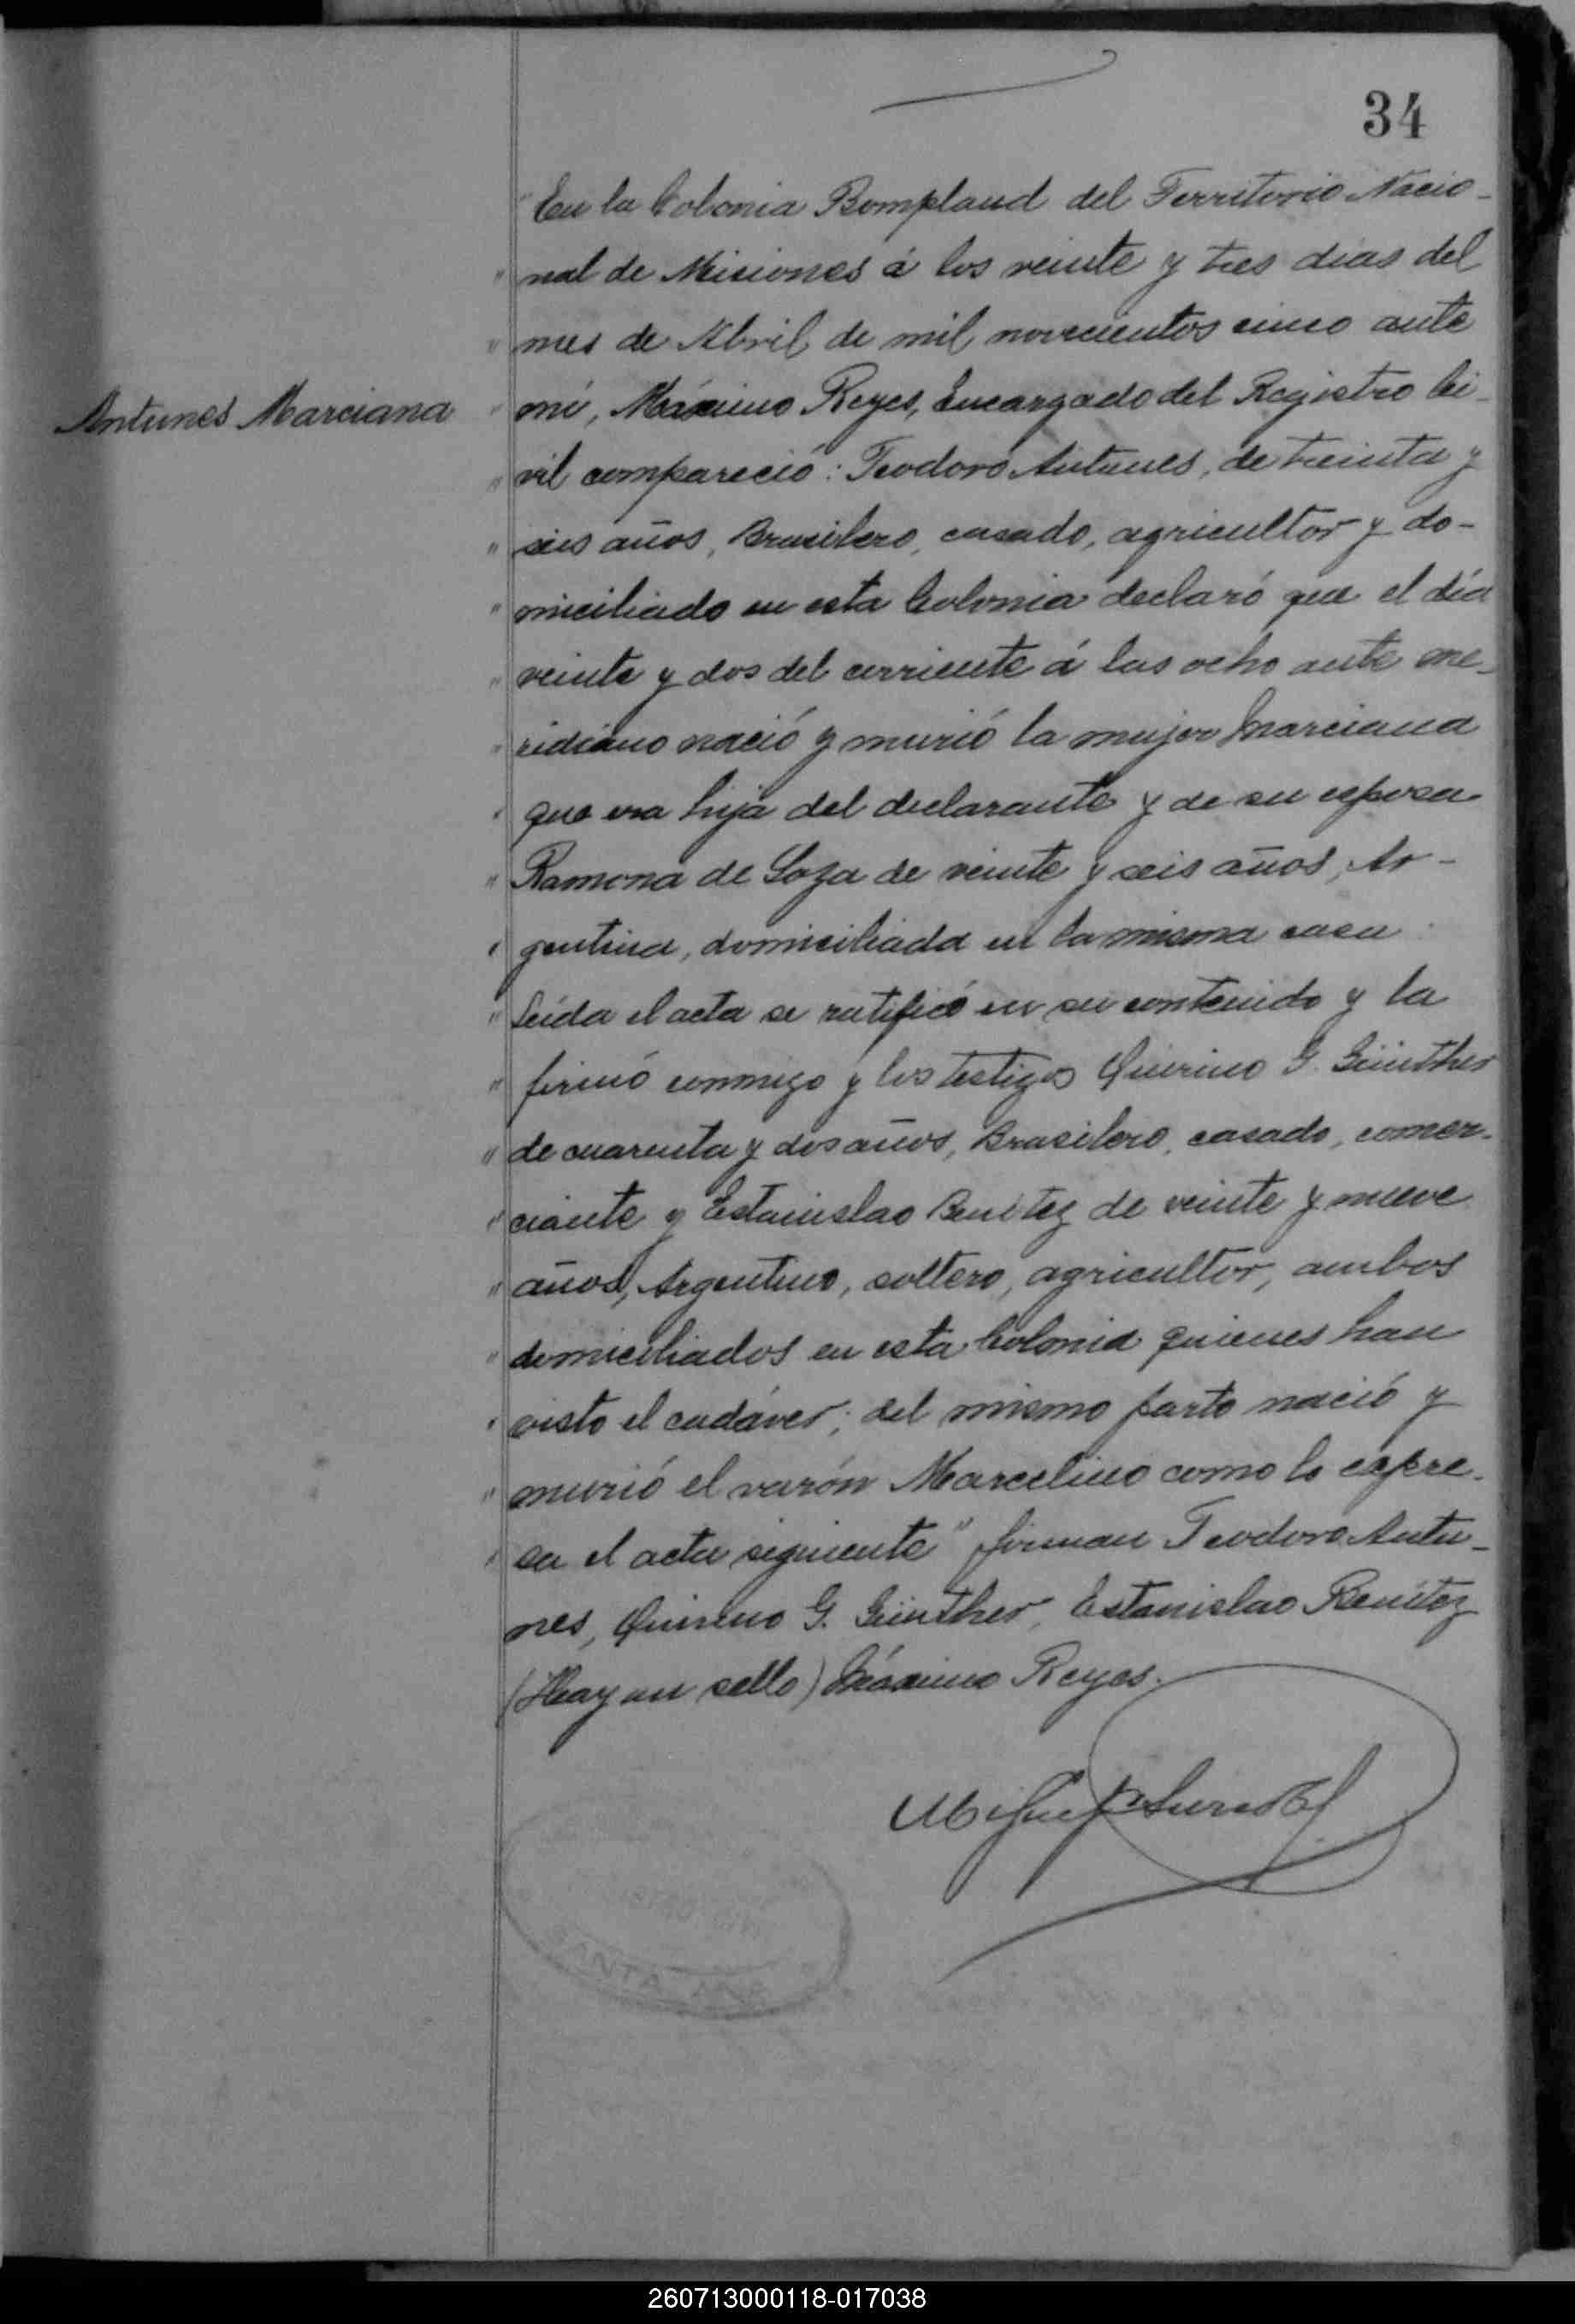 34
"En la Colonia Bompland del Territorio Nacio-
" nal de Misiones á los veinte y tres dias del
" mes de Abril de mil novecientos cinco ante
Antunes Marciana
" mí, Máximo Reyes, Encargado del Registro Ci-
" vil compareció: Teodoro Antunes, de treinta y
" seis años, Brasilero, casado, agricultor y do-
" miciliado en esta Colonia declaró que el día
" veinte y dos del corriente á las ocho ante me-
" ridiano nació y murió la mujer Marciana
" que era hija del declarante y de su esposa
" Ramona de Soza de veinte y seis años, Ar-
" gentina, domiciliada en la misma casa.
" Leída el acta se ratificó en su contenido y la
" firmó conmigo y los testigos Quirino G. Günther
" de cuarenta y dos años, Brasilero, casado, comer-
" ciante y Estanislao Benitez de veinte y nueve
" años, Argentino, soltero, agricultor, ambos
" domiciliados en esta Colonia quienes han
" visto el cadáver; del mismo parto nació y
" murió el varón Marcelino como lo expre-
" sa el acta siguiente" firman Teodoro Antu-
nes, Quirino G. Günther, Estanislao Benítez
(Hay un sello) Máximo Reyes.
SANTA ANA
260713000118-017038